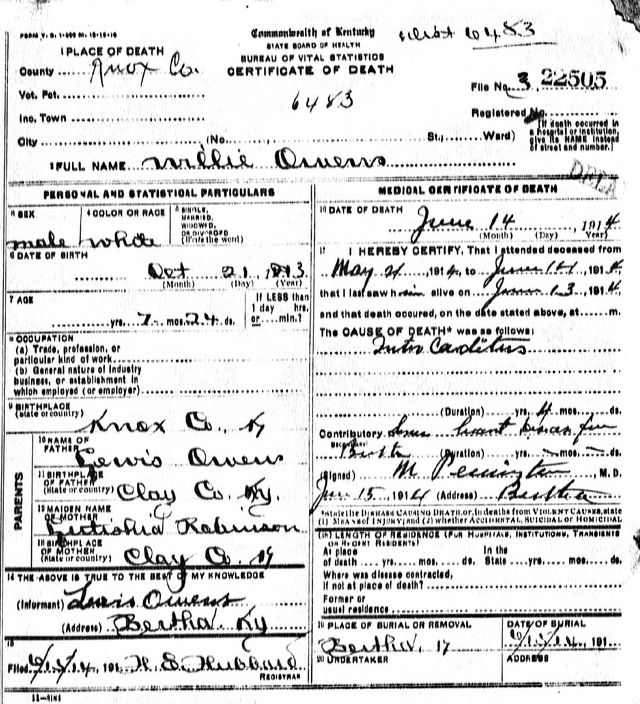 FORM V. S. 1-
Commonwealth of Kentucky
6483
STATE BOARD OF HEALTH
1 PLACE OF DEATH
BUREAU OF VITAL STATISTICS
County Knox Co.
CERTIFICATE OF DEATH
Vot. Pct.
File No. 3 22505
6483
Inc. Town
Registered No.
City (No. St.; Ward)
(If death occurred in a hospital or institution, give its NAME instead of street and number.)
2 FULL NAME Willie Owens
PERSONAL AND STATISTICAL PARTICULARS
3 SEX
male
4 COLOR OR RACE
white
5 SINGLE, MARRIED, WIDOWED, OR DIVORCED
(Write the word)
6 DATE OF BIRTH
Oct 21, 1913
(Month) (Day) (Year)
7 AGE
If LESS than
1 day hrs.
or min.?
yrs. 7 mos. 24 ds.
8 OCCUPATION
(a) Trade, profession, or
particular kind of work
(b) General nature of industry
business, or establishment in
which employed (or employer)
9 BIRTHPLACE
(State or country)
Knox Co. Ky
PARENTS
10 NAME OF
FATHER
Lewis Owens
11 BIRTHPLACE
OF FATHER
(State or country)
Clay Co. Ky.
12 MAIDEN NAME
OF MOTHER
Robinson
13 BIRTHPLACE
OF MOTHER
(State or country)
Clay Co. Ky
14 THE ABOVE IS TRUE TO THE BEST OF MY KNOWLEDGE
(Informant) Lewis Owens
(Address) Bertha Ky
15
Filed 191 H. E. Hubbard
REGISTRAR
MEDICAL CERTIFICATE OF DEATH
16 DATE OF DEATH
June 14 1914
(Month) (Day) (Year)
17 I HEREBY CERTIFY, That I attended deceased from
May 1914, to June 1914
that I last saw him alive on June 13 1914
and that death occurred, on the date stated above, at m.
The CAUSE OF DEATH* was as follows:
(Duration) yrs. 4 mos. ds.
Contributory
SECONDARY
Birth (Duration) yrs. mos. ds.
(Signed) M. Pennington M. D.
15 1914 (Address) Bertha
*State the DISEASE CAUSING DEATH, or, in deaths from VIOLENT CAUSES, state
(1) MEANS OF INJURY; and (2) whether ACCIDENTAL, SUICIDAL OR HOMICIDAL
LENGTH OF RESIDENCE (FOR HOSPITALS, INSTITUTIONS, TRANSIENTS
OR RECENT RESIDENTS)
At place In the
of death yrs. mos. ds. State yrs. mos. ds.
Where was disease contracted,
if not at place of death?
Former or
usual residence
19 PLACE OF BURIAL OR REMOVAL
Bertha,
DATE OF BURIAL
191
20 UNDERTAKER
ADDRESS